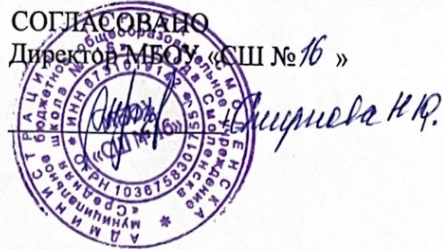 СОГЛАСОВАНО
Директор МБОУ «СШ №16 »
Смирнова Н.Ю.
АДМИНИСТРАЦИЯ СМОЛЕНСКА
Муниципальное бюджетное общеобразовательное учреждение
«Средняя школа № 16» города Смоленска
«СШ № 16»